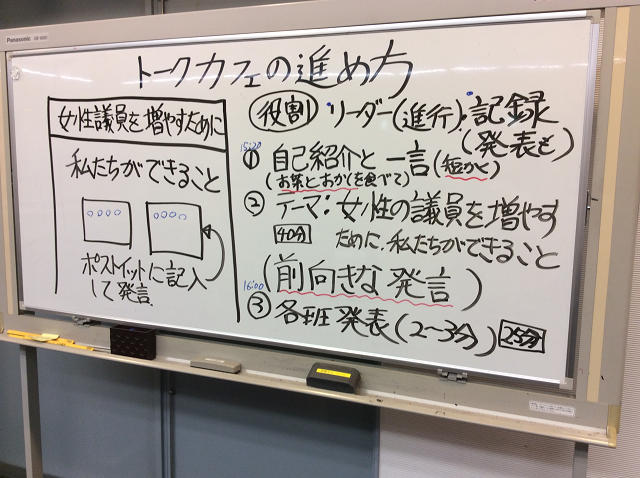 Panasonic
トークカフェの進め方
女性議員を増やすために
私たちができること
○○○○ ○○○○
ポストイットに記入
して発言
役割 リーダー(進行)・記録
(発表も)
15:20
① 自己紹介と一言(短かく)
(お茶とおかしを食べて)
② テーマ:女性の議員を増やす
40分 ために、私たちができること
(前向きな発言)
16:00
③ 各班発表(2〜3分) 25分